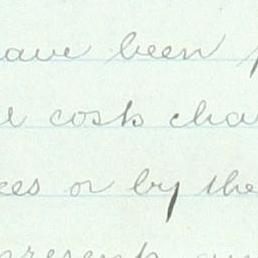 ave been
e costs cha
ees or by the
present